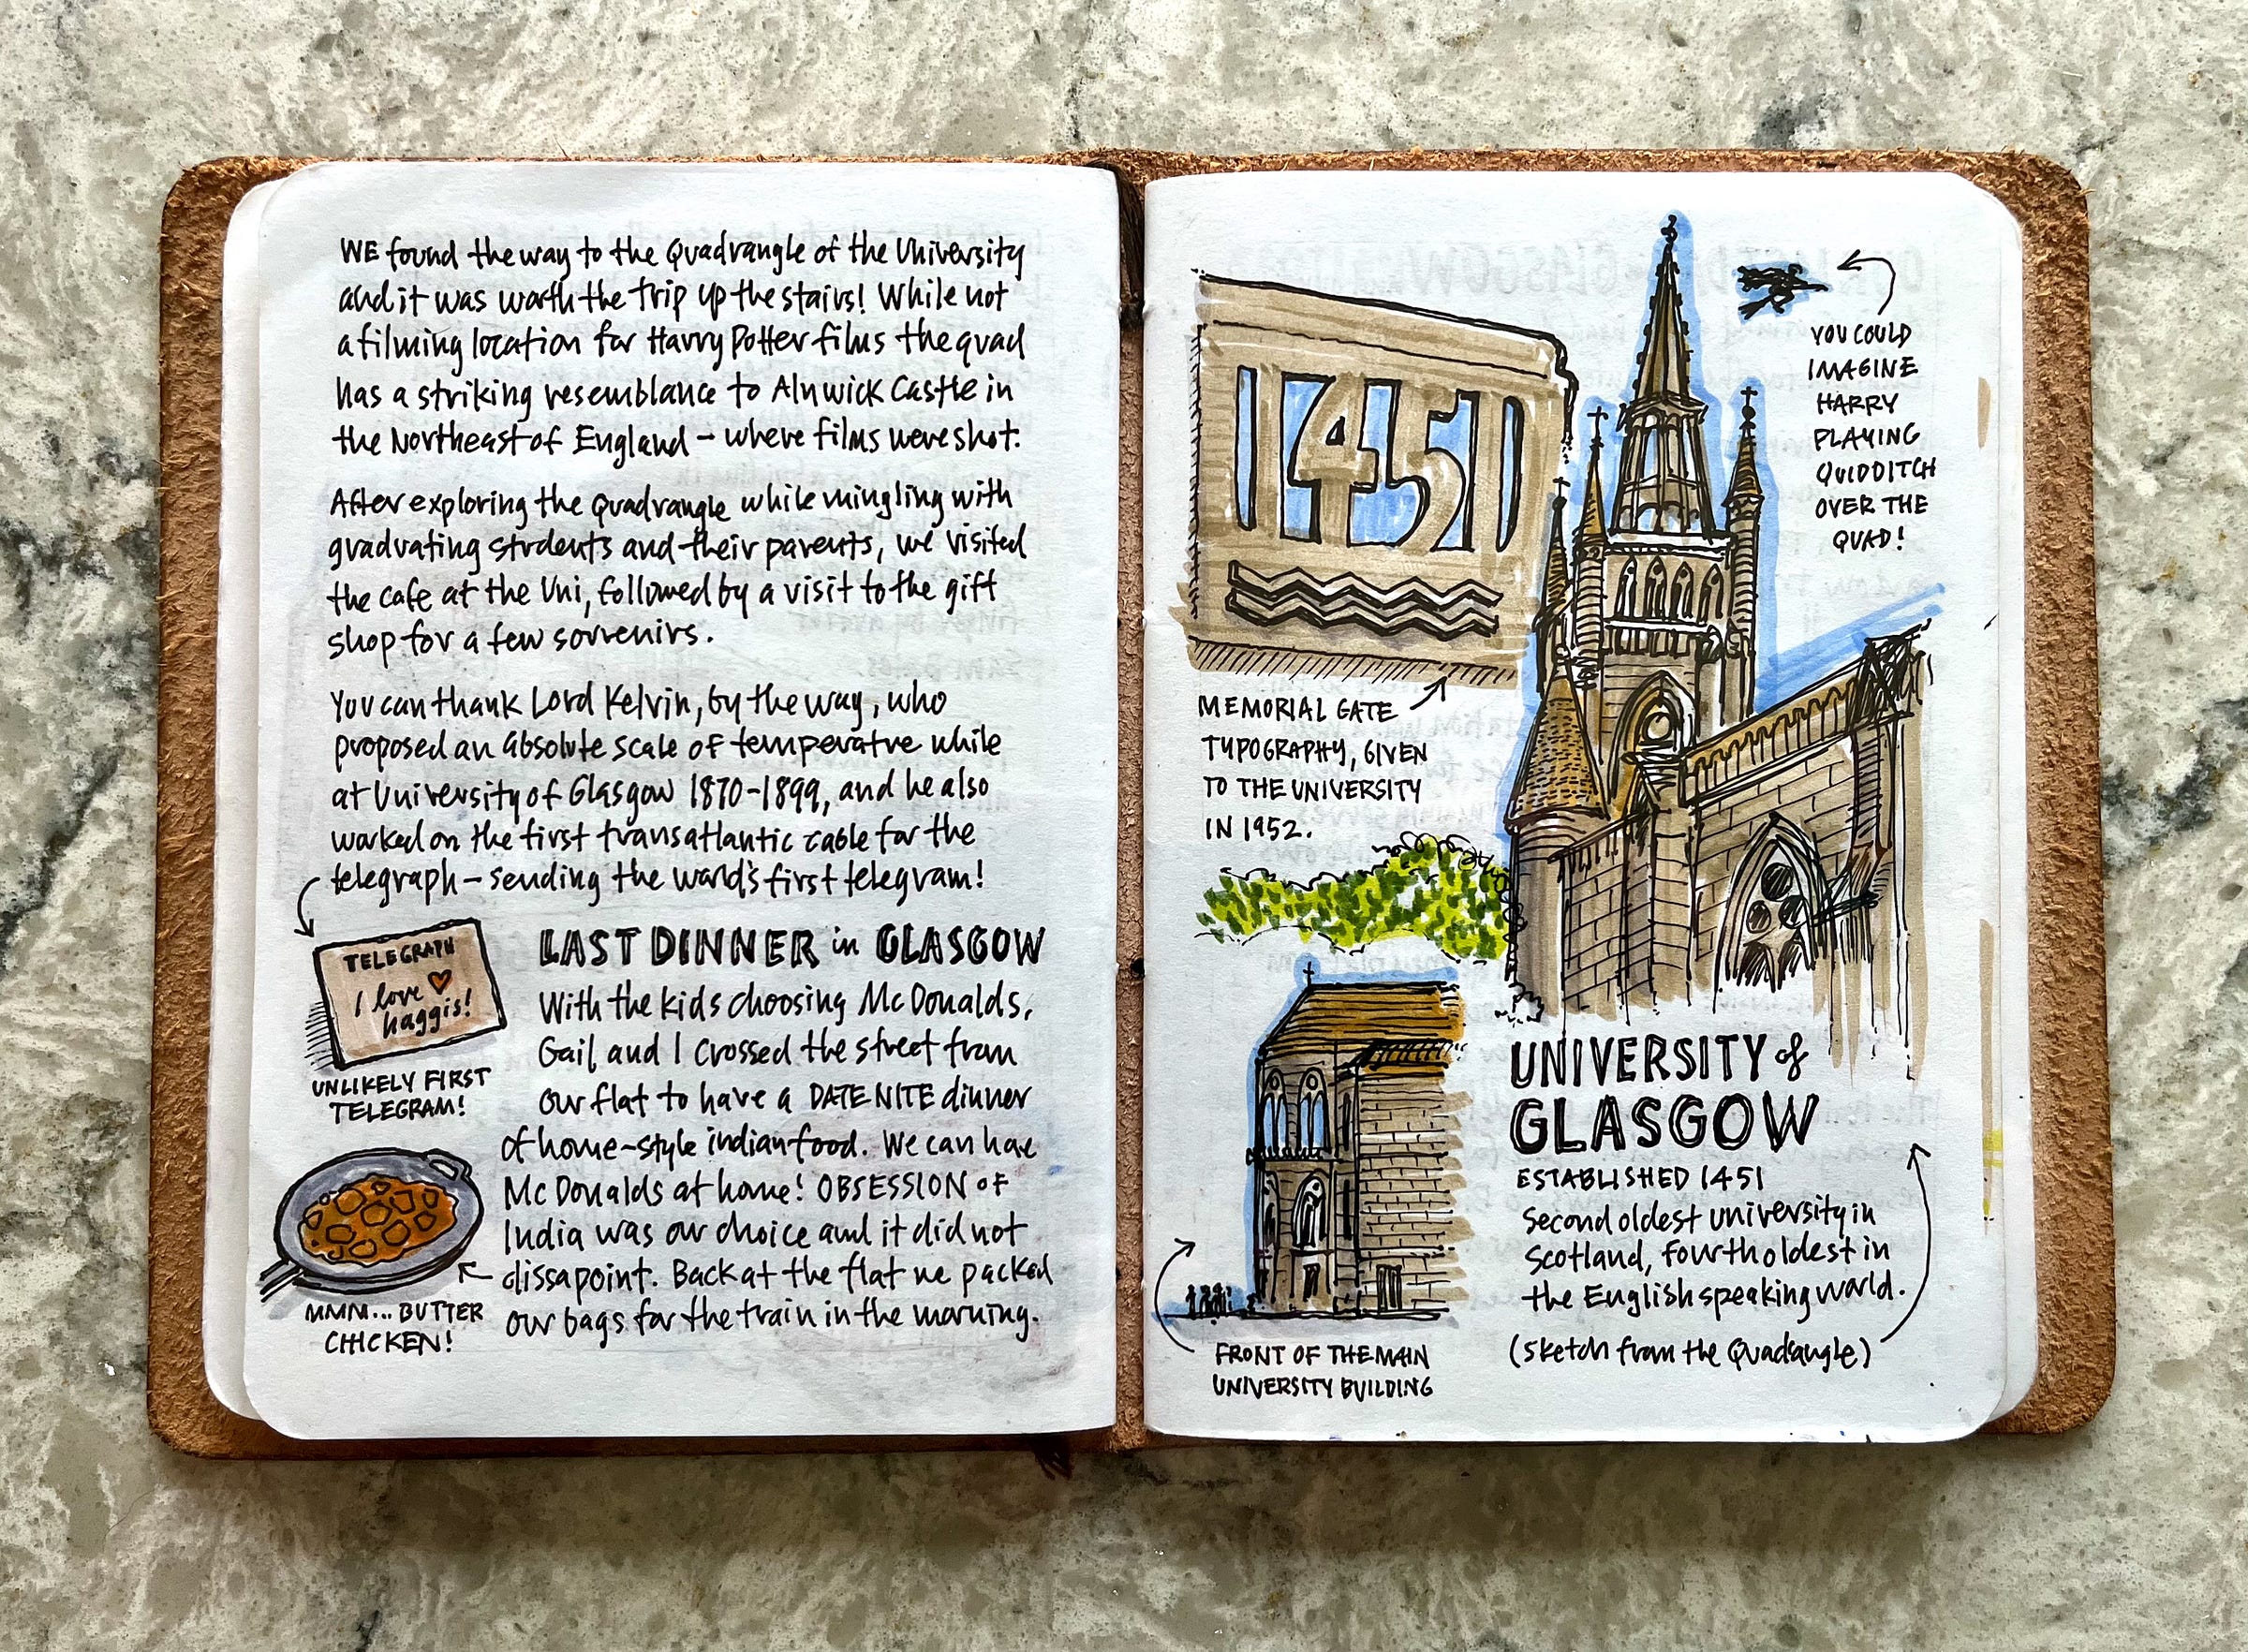 WE found the way to the Quadrangle of the University
and it was worth the trip up the stairs! While not
a filming location for Harry Potter films the quad
has a striking resemblance to Alnwick Castle in
the Northeast of England – where films were shot.
After exploring the Quadrangle while mingling with
graduating students and their parents, we visited
the cafe at the Uni, followed by a visit to the gift
shop for a few souvenirs.
You can thank Lord Kelvin, by the way, who
proposed an absolute scale of temperature while
at University of Glasgow 1870-1899, and he also
worked on the first transatlantic cable for the
telegraph – sending the world's first telegram!
TELEGRAPH
I love ♥
haggis!
UNLIKELY FIRST
TELEGRAM!
LAST DINNER in GLASGOW
With the kids choosing McDonalds,
Gail and I crossed the street from
our flat to have a DATE NITE dinner
of home-style indian food. We can have
McDonalds at home! OBSESSION OF
India was our choice and it did not
dissapoint. Back at the flat we packed
our bags for the train in the morning.
MMM... BUTTER
CHICKEN!
1451
MEMORIAL GATE
TYPOGRAPHY, GIVEN
TO THE UNIVERSITY
IN 1952.
YOU COULD
IMAGINE
HARRY
PLAYING
QUIDDITCH
OVER THE
QUAD!
UNIVERSITY of
GLASGOW
ESTABLISHED 1451
Second oldest university in
Scotland, fourth oldest in
the English speaking world.
(sketch from the Quadrangle)
FRONT OF THE MAIN
UNIVERSITY BUILDING